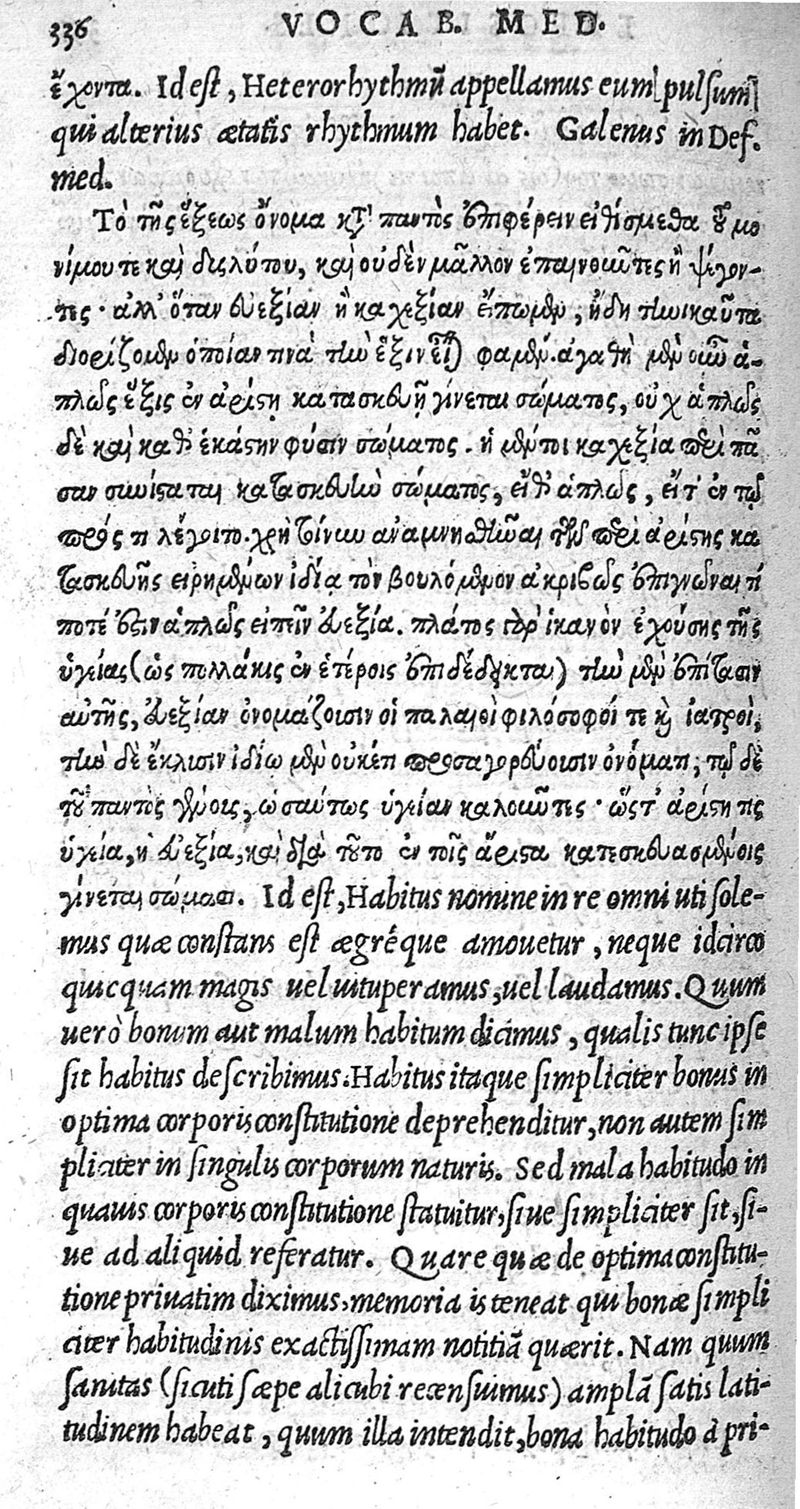 336 VOCAB. MED.
ἔχοντα. Id est, Heterorhythmũ appellamus eum pulsum
qui alterius ætatis rhythmum habet. Galenus in Def.
med.
Τὸ τῆς ἕξεως ὄνομα κτ̃ παντὸς ἐπιφέρειν εἰθίσμεθα τοῦ μο
νίμου τε καὶ δυσλύτου, καὶ οὐδὲν μᾶλλον ἐπαινοῦντες ἢ ψέγον-
τες· ἀλλ' ὅταν εὐεξίαν ἢ καχεξίαν εἴπωμεν, ἤδη τηνικαῦτα
διορίζομεν ὁποίαν τινὰ τὴν ἕξιν εἶναι φαμέν. ἀγαθὴ μὲν οὖν ἁ-
πλῶς ἕξις ἐν ἀρίστῃ κατασκευῇ γίνεται σώματος, οὐχ ἁπλῶς
δὲ καὶ καθ' ἑκάστην φύσιν σώματος. ἡ μέντοι καχεξία περὶ πᾶ
σαν συνίσταται κατασκευὴν σώματος, εἴθ' ἁπλῶς, εἴτ' ἐν τῷ
πρός τι λέγοιτο. χρὴ τοίνυν ἀναμνησθῶναι τῶν περὶ ἀρίστης κα
τασκευῆς εἰρημένων ἰδίᾳ τὸν βουλόμενον ἀκριβῶς ἐπιγνῶναι τί
ποτέ ἐστιν ἁπλῶς εἰπεῖν εὐεξία. πλάτος γὰρ ἱκανὸν ἐχούσης τῆς
ὑγείας (ὡς πολλάκις ἐν ἑτέροις ἐπιδέδεικται) τὴν μὲν ἐπίτασιν
αὐτῆς, εὐεξίαν ὀνομάζουσιν οἱ παλαιοὶ φιλόσοφοί τε κὶ ἰατροί,
τὴν δὲ ἔκλυσιν ἰδίῳ μὲν οὐκέτι προσαγορεύουσιν ὀνόματι, τῷ δὲ
τοῦ παντὸς γένους, ὡσαύτως ὑγίειαν καλοῦντες· ὥστ' ἀρίστη τις
ὑγεία, ἡ εὐεξία, καὶ διὰ τοῦτο ἐν τοῖς ἄριστα κατεσκευασμένοις
γίνεται σώμασι. Id est, Habitus nomine in re omni uti sole-
mus quæ constans est ægréque amouetur, neque idcirco
quicquam magis uel uituperamus, uel laudamus. Quum
uerò bonum aut malum habitum dicimus, qualis tunc ipse
sit habitus describimus. Habitus itaque simpliciter bonus in
optima corporis constitutione deprehenditur, non autem sim
pliciter in singulis corporum naturis. Sed mala habitudo in
quauis corporis constitutione statuitur, siue simpliciter sit, si-
ue ad aliquid referatur. Quare quæ de optima constitu-
tione priuatim diximus, memoria is teneat qui bonæ simpli
citer habitudinis exactissimam notitiã quærit. Nam quum
sanitas (sicuti sæpe alicubi recensuimus) amplã satis lati-
tudinem habeat, quum illa intendit, bona habitudo à pri-